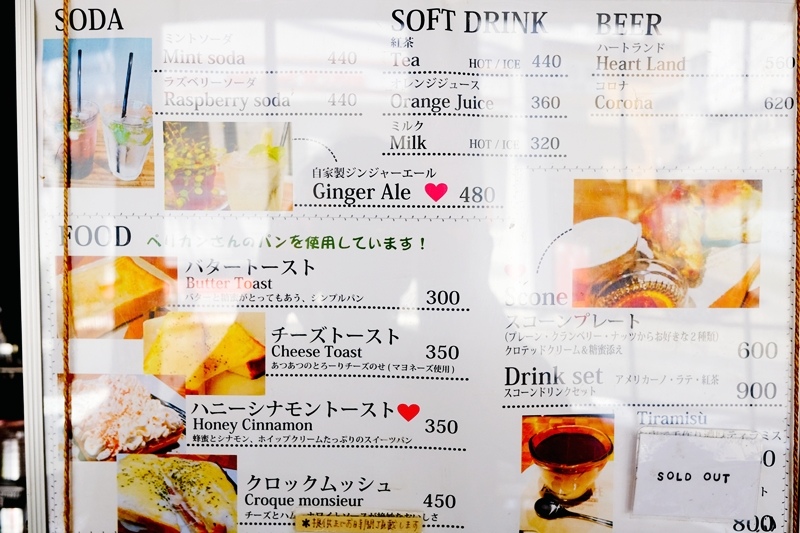 SODA
ミントソーダ
Mint soda 440
ラズベリーソーダ
Raspberry soda 440
自家製ジンジャーエール
Ginger Ale 480
SOFT DRINK
紅茶
Tea HOT / ICE 440
オレンジジュース
Orange Juice 360
ミルク
Milk HOT / ICE 320
BEER
ハートランド
Heart Land 560
コロナ
Corona 620
FOOD ペリカンさんのパンを使用しています！
バタートースト
Butter Toast
300
チーズトースト
Cheese Toast 350
あつあつのとろーりチーズのせ（マヨネーズ使用）
ハニーシナモントースト
Honey Cinnamon 350
蜂蜜とシナモン、ホイップクリームたっぷりのスイーツパン
クロックムッシュ
Croque monsieur 450
Scone
スコーンプレート
（プレーン・クランベリー・ナッツからお好きな2種類）
クロテッドクリーム＆糖蜜添え 600
Drink set アメリカーノ・ラテ・紅茶
スコーンドリンクセット 900
Tiramisù
SOLD OUT
800